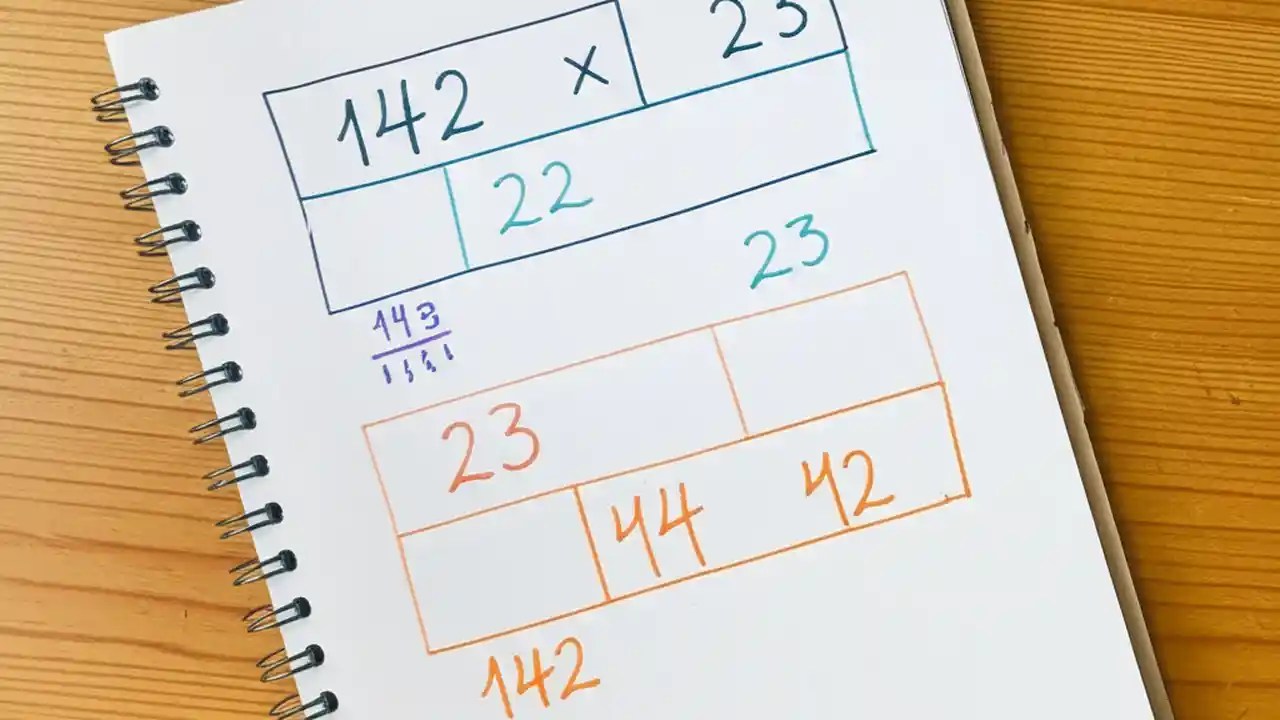 142 × 23
22
23
143
23
44 42
142